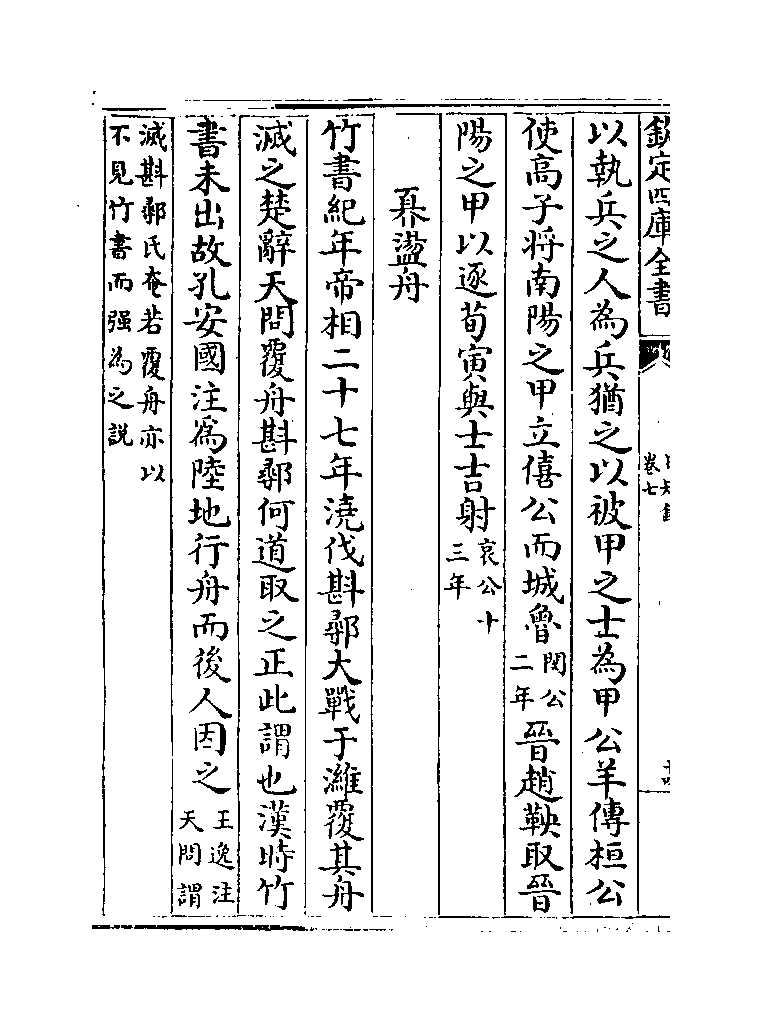 欽定四庫全書
卷七
以執兵之人為兵猶之以被甲之士為甲公羊傳桓公
使高子將南陽之甲立僖公而城魯閔公二年晉趙鞅取晉
陽之甲以逐荀寅與士吉射哀公十三年
奡盪舟
竹書紀年帝相二十七年澆伐斟鄩大戰于濰覆其舟
滅之楚辭天問覆舟斟鄩何道取之正此謂也漢時竹
書未出故孔安國注為陸地行舟而後人因之王逸注天問謂
滅斟鄩氏奄若覆舟亦以不見竹書而强為之説